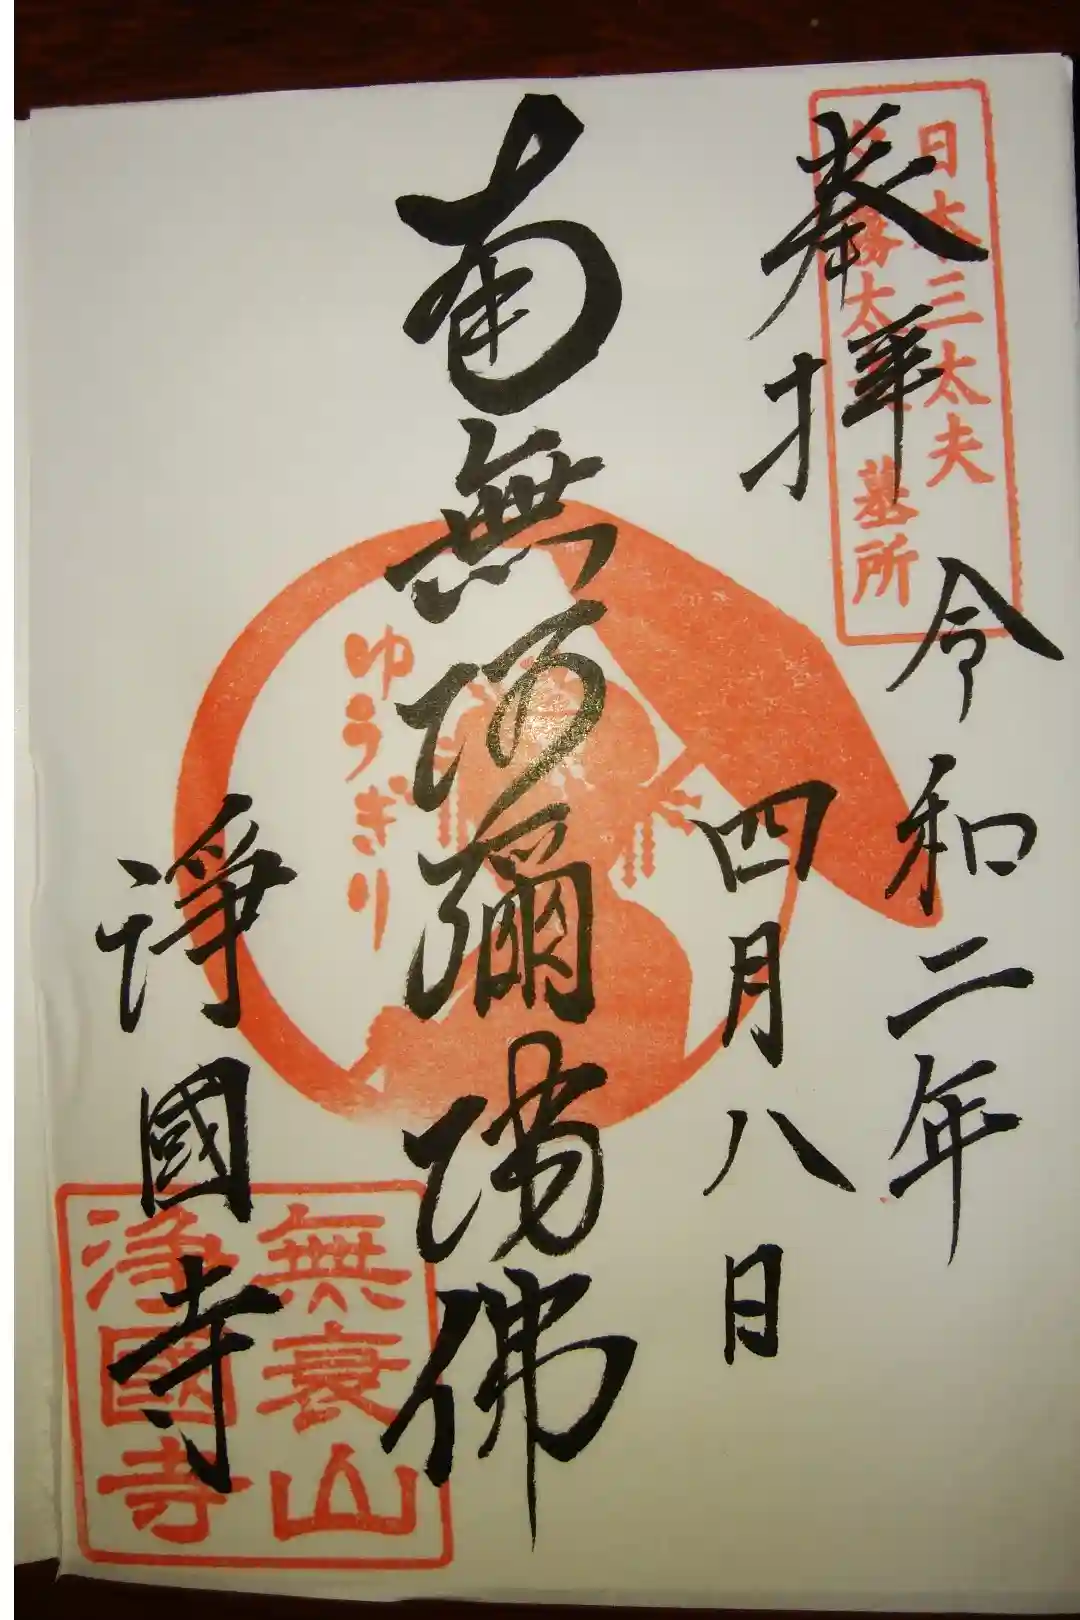 日本三太夫
夕霧太夫 墓所
奉拝
令和二年
四月八日
南無阿彌陀佛
ゆうぎり
浄國寺
無衰山
浄國寺